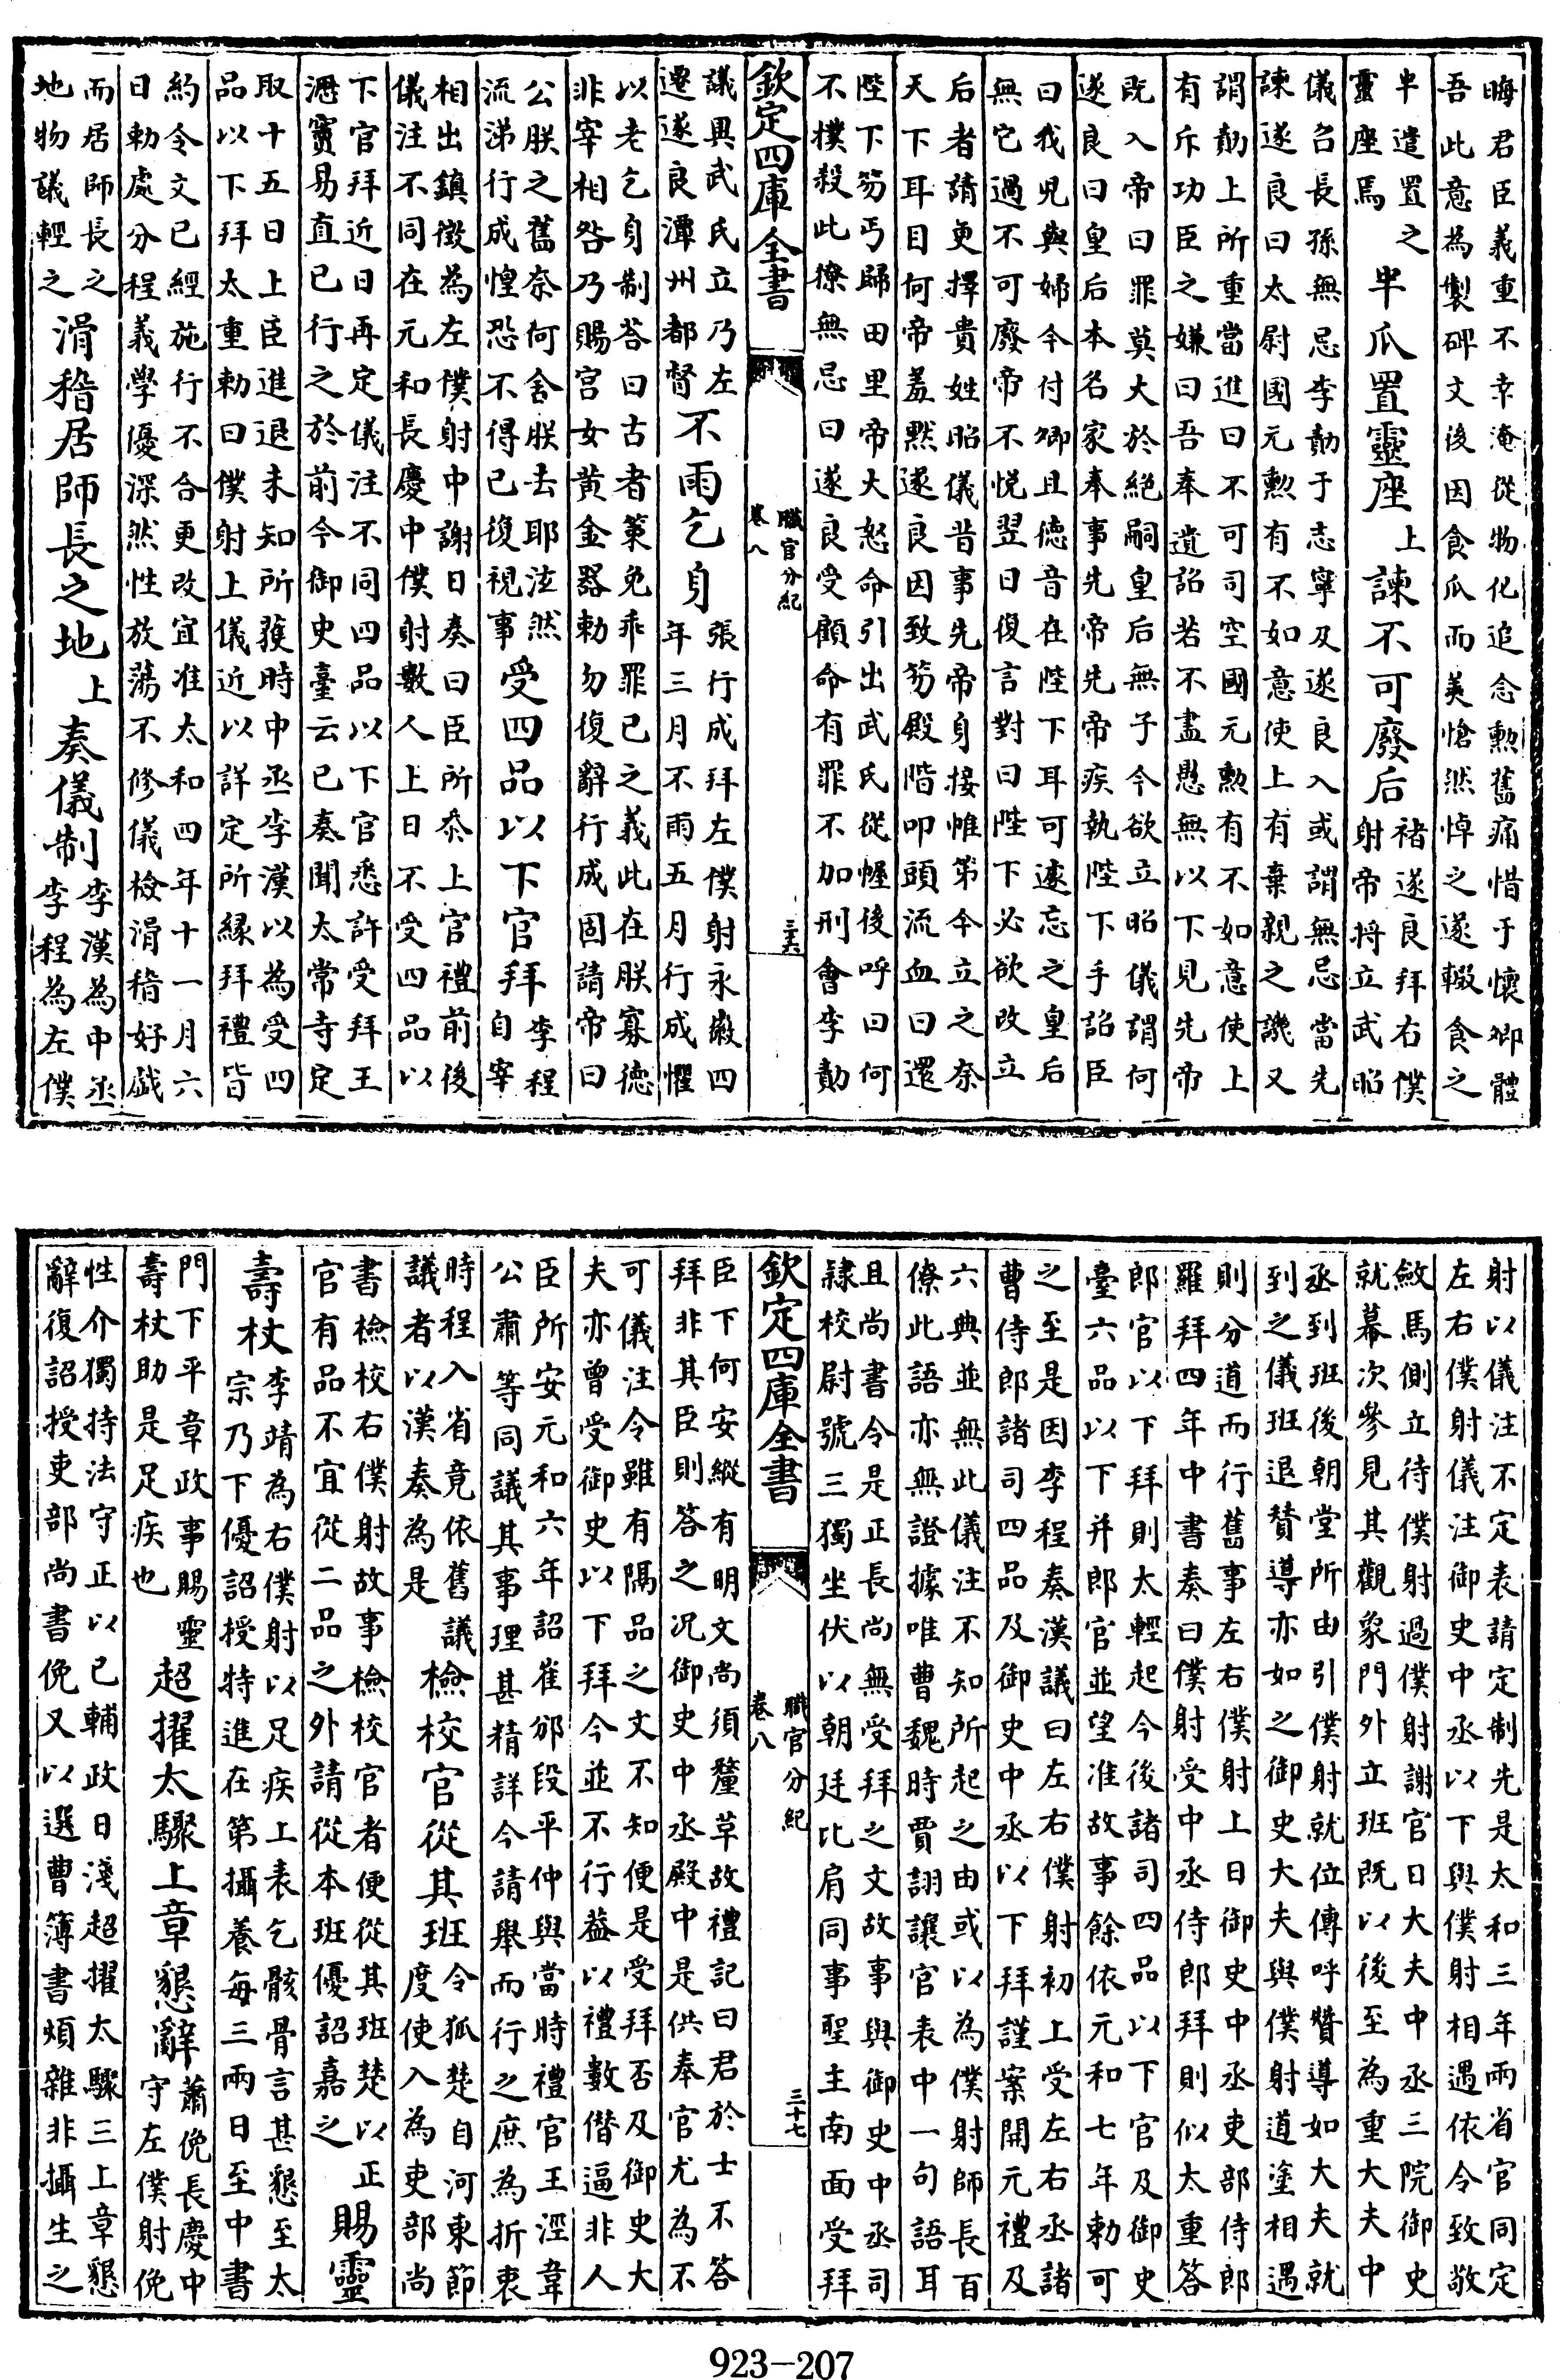 晦君臣義重不幸淹從物化追念勲舊痛惜于懷卿體
吾此意為製碑文後因食瓜而美愴然悼之遂輟食之
半遣置之
靈座焉
半瓜置靈座
上
諫不可廢后
褚遂良拜右僕
射帝将立武昭
儀召長孫無忌李勣于志寧及遂良入或謂無忌當先
諫遂良曰太尉國元勲有不如意使上有棄親之譏又
謂勣上所重當進曰不可司空國元勲有不如意使上
有斥功臣之嫌曰吾奉遺詔若不盡愚無以下見先帝
既入帝曰罪莫大於絶嗣皇后無子今欲立昭儀謂何
遂良曰皇后本名家奉事先帝先帝疾執陛下手詔臣
曰我兒與婦今付卿且德音在陛下耳可遽忘之皇后
無它過不可廢帝不悦翌日復言對曰陛下必欲改立
后者請更擇貴姓昭儀昔事先帝身接帷第今立之奈
天下耳目何帝羞黙遂良因致笏殿階叩頭流血曰還
陛下笏丐歸田里帝大怒命引出武氏從幄後呼曰何
不撲殺此獠無忌曰遂良受顧命有罪不加刑會李勣
欽定四庫全書
職官分紀
卷八
三十六
議異武氏立乃左
遷遂良潭州都督
不雨乞身
張行成拜左僕射永徽四
年三月不雨五月行成懼
以老乞身制荅曰古者策免乖罪已之義此在朕寡德
非宰相咎乃賜宫女黄金器勅勿復辭行成固請帝曰
公朕之舊奈何舍朕去耶泫然
流涕行成惶恐不得已復視事
受四品以下官拜
李程
自宰
相出鎮徵為左僕射中謝日奏曰臣所忝上官禮前後
儀注不同在元和長慶中僕射數人上日不受四品以
下官拜近日再定儀注不同四品以下官悉許受拜王
涯竇易直已行之於前今御史臺云已奏聞太常寺定
取十五日上臣進退未知所獲時中丞李漢以為受四
品以下拜太重勅曰僕射上儀近以詳定所縁拜禮皆
約令文已經施行不合更改宜准太和四年十一月六
日勅處分程義學優深然性放蕩不修儀檢滑稽好戯
而居師長之
地物議輕之
滑稽居師長之地
上
奏儀制
李漢為中丞
李程為左僕
射以儀注不定表請定制先是太和三年兩省官同定
左右僕射儀注御史中丞以下與僕射相遇依令致敬
斂馬側立待僕射過僕射謝官日大夫中丞三院御史
就幕次參見其觀象門外立班既以後至為重大夫中
丞到班後朝堂所由引僕射就位傳呼贊導如大夫就
到之儀班退贊導亦如之御史大夫與僕射道塗相遇
則分道而行舊事左右僕射上日御史中丞吏部侍郎
羅拜四年中書奏曰僕射受中丞侍郎拜則似太重答
郎官以下拜則太輕起今後諸司四品以下官及御史
臺六品以下并郎官並望准故事餘依元和七年勅可
之至是因李程奏漢議曰左右僕射初上受左右丞諸
曹侍郎諸司四品及御史中丞以下拜謹案開元禮及
六典並無此儀注不知所起之由或以為僕射師長百
僚此語亦無證據唯曹魏時賈詡讓官表中一句語耳
且尚書令是正長尚無受拜之文故事與御史中丞司
隷校尉號三獨坐伏以朝廷比肩同事聖主南面受拜
欽定四庫全書
職官分紀
卷八
三十七
臣下何安縱有明文尚須釐草故禮記曰君於士不答
拜非其臣則答之况御史中丞殿中是供奉官尤為不
可儀注令雖有隔品之文不知便是受拜否及御史大
夫亦曾受御史以下拜今並不行葢以禮數僭逼非人
臣所安元和六年詔崔邠段平仲與當時禮官王涇韋
公肅等同議其事理甚精詳今請舉而行之庶為折衷
時程入省竟依舊議
議者以漢奏為是
檢校官從其班
令狐楚自河東節
度使入為吏部尚
書檢校右僕射故事檢校官者便從其班楚以正
官有品不宜從二品之外請從本班優詔嘉之
賜靈
壽杖
李靖為右僕射以足疾上表乞骸骨言甚懇至太
宗乃下優詔授特進在第攝養每三兩日至中書
門下平章政事賜靈
壽杖助是足疾也
超擢太驟上章懇辭
蕭俛長慶中
守左僕射俛
性介獨持法守正以已輔政日淺超擢太驟三上章懇
辭復詔授吏部尚書俛又以選曹簿書煩雜非攝生之
923-207